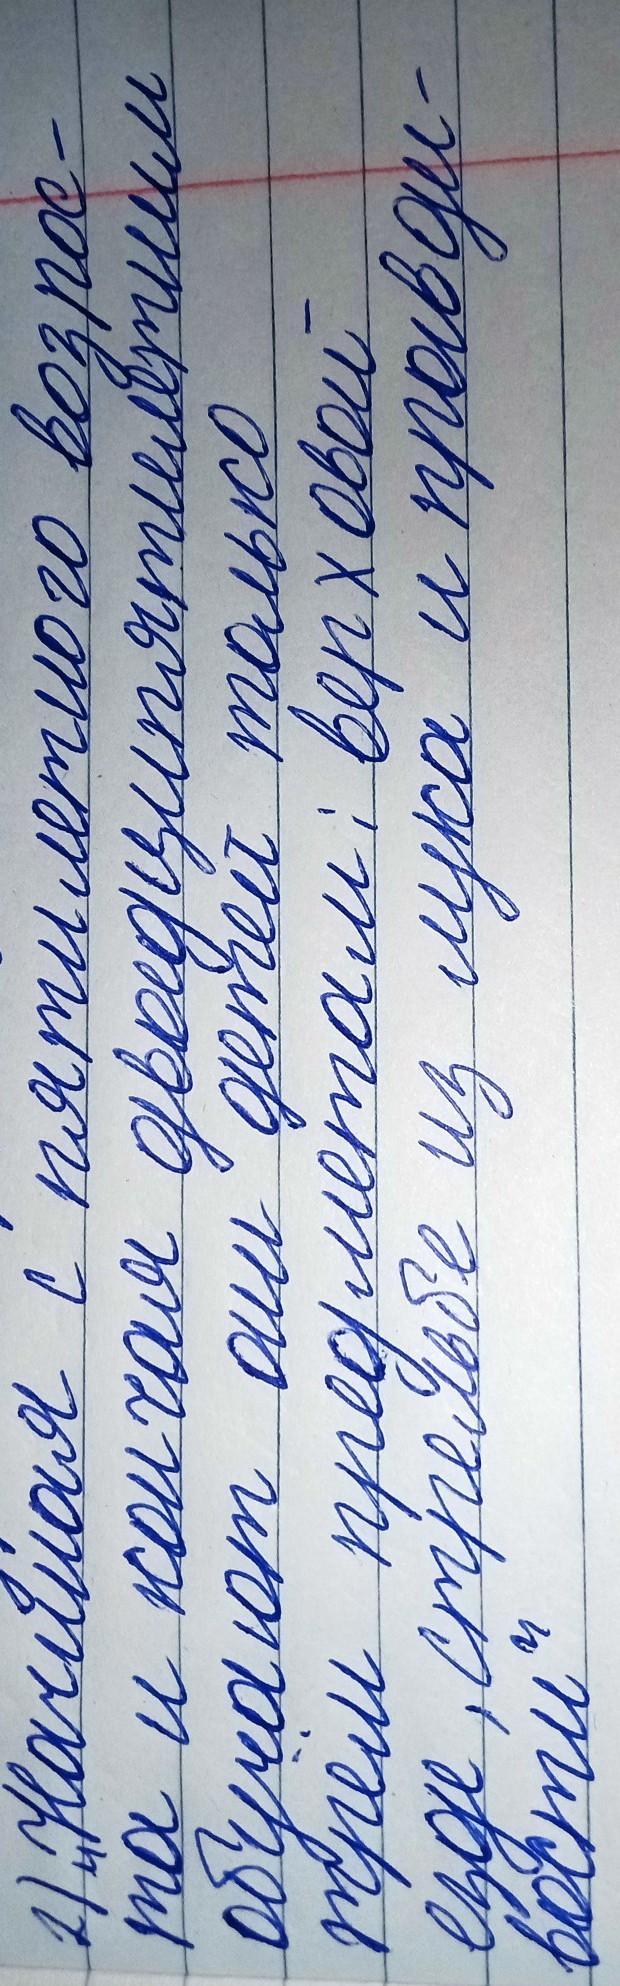 2) „Начиная с пятилетнего возрос-
та и кончая двадципятилетним
обучают они детей только
трём предметам: верховой
езде, стрельбе из лука и правди-
вости"